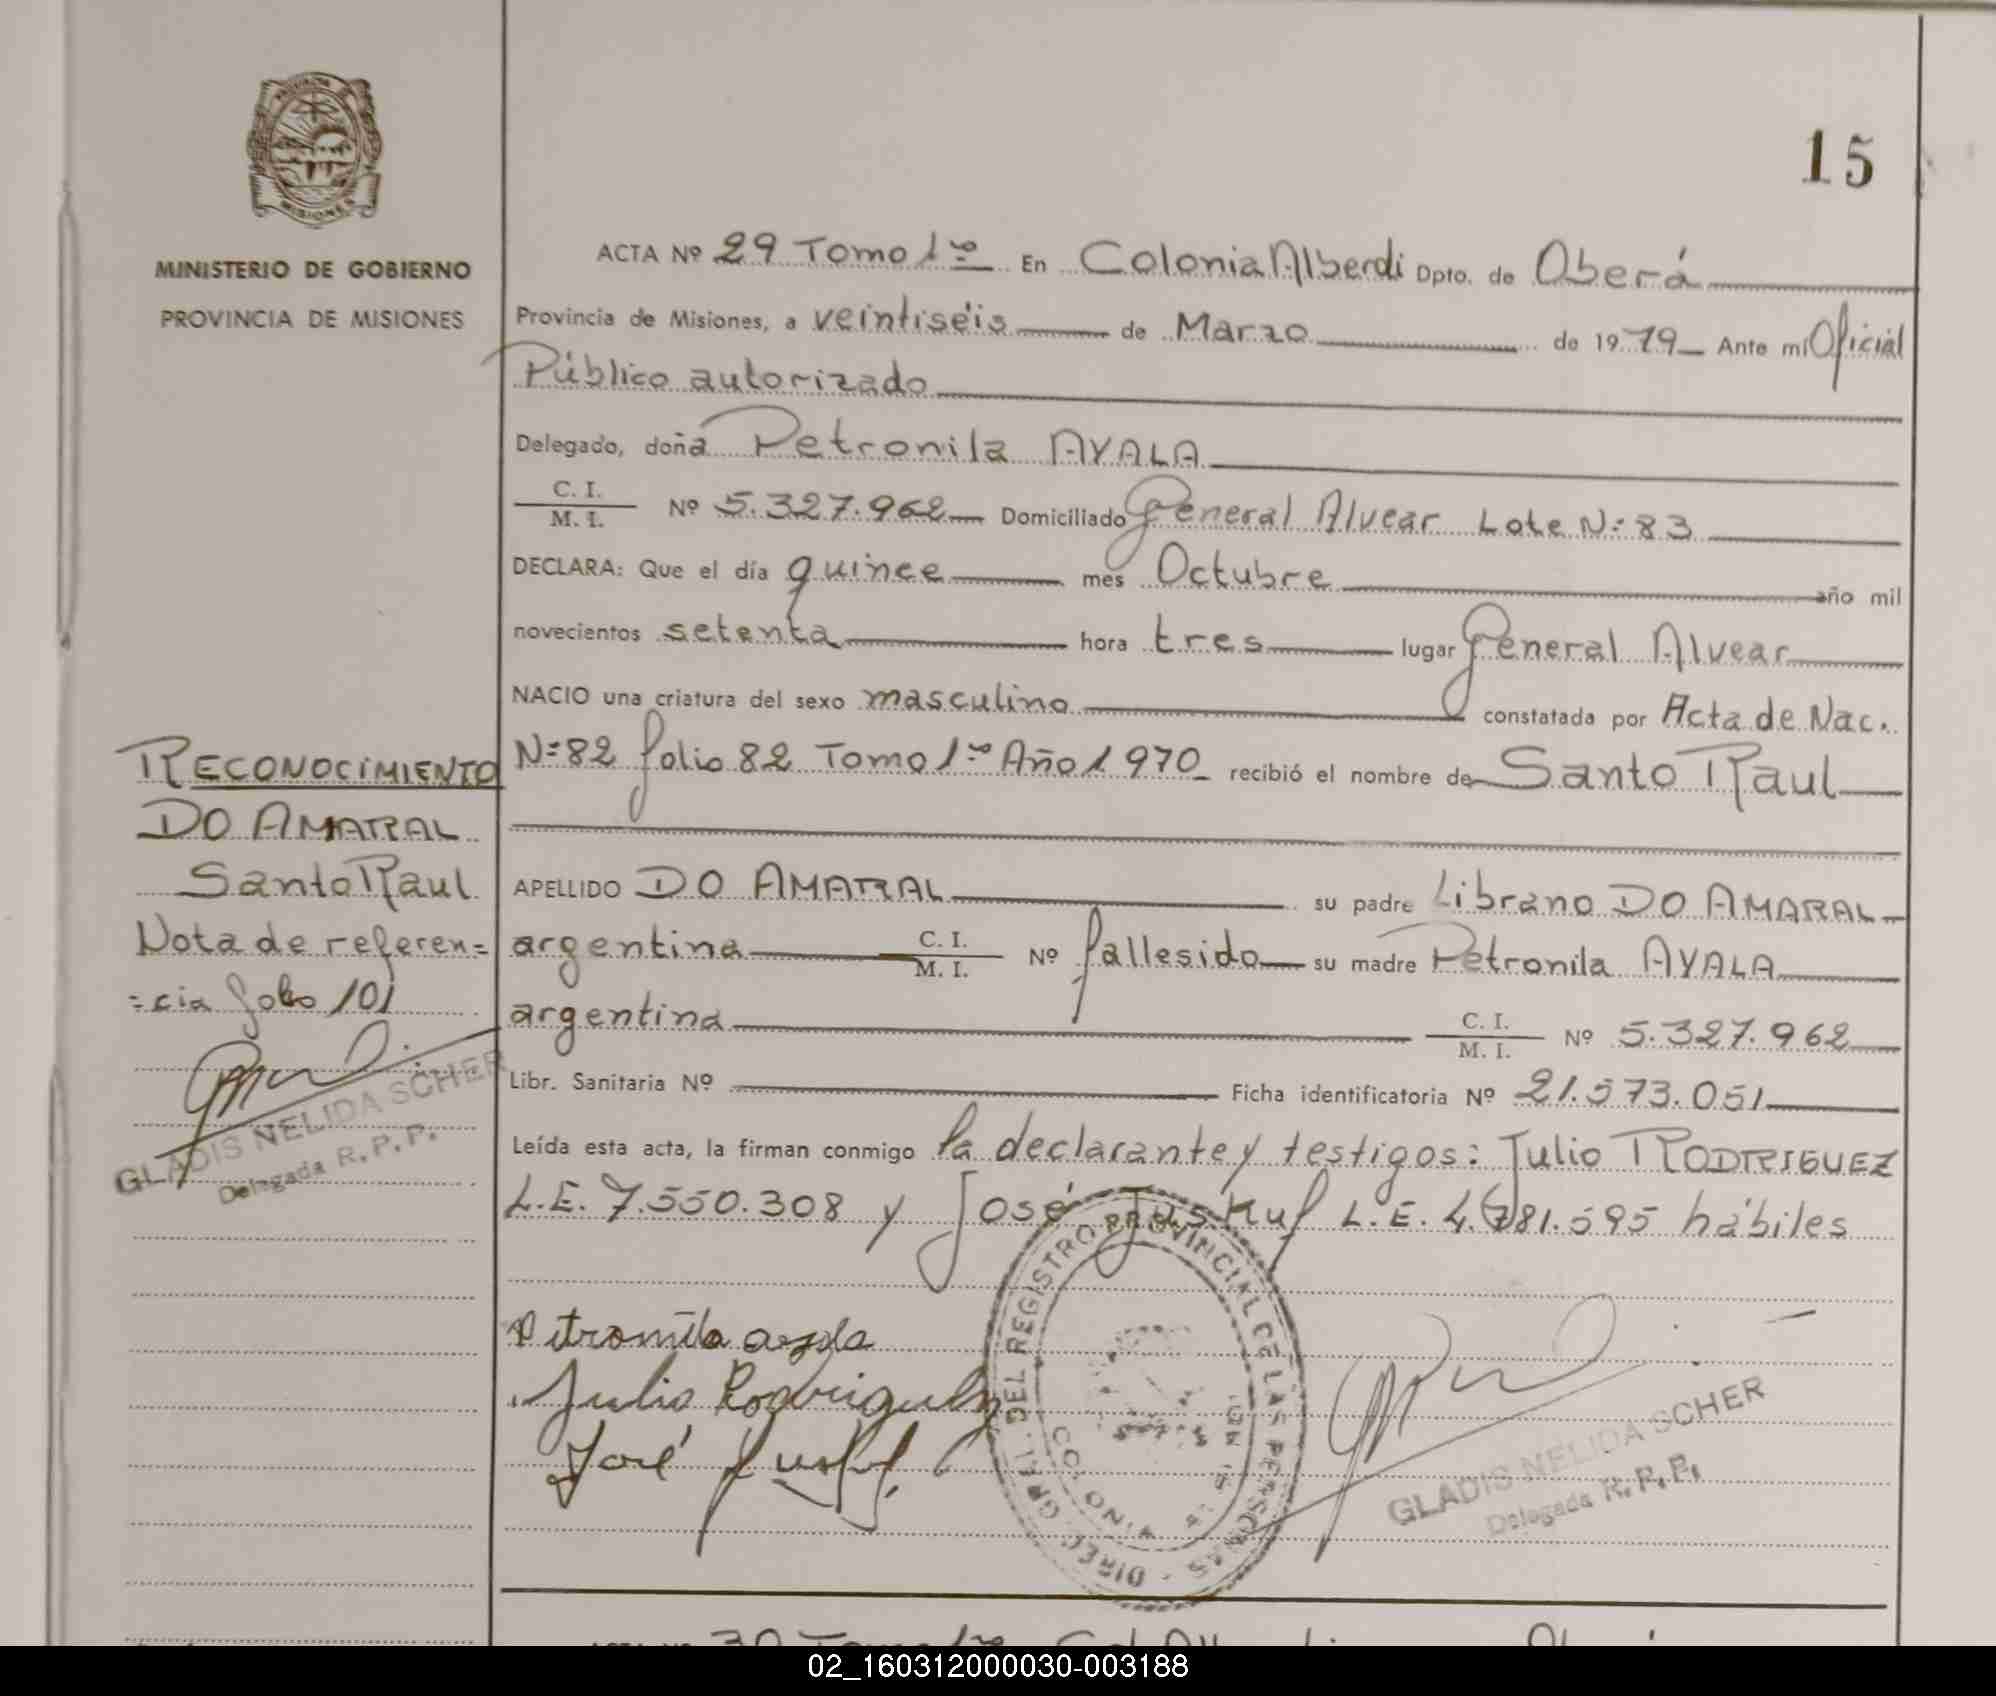 15
MINISTERIO DE GOBIERNO
PROVINCIA DE MISIONES
ACTA Nº 29 Tomo 1ro En Colonia Alberdi Dpto. de Oberá
Provincia de Misiones, a veintiséis de Marzo de 1979 Ante mi Oficial
Público autorizado
Delegado, doña Petronila AYALA
C. I.
M. I. Nº 5.327.962 Domiciliado General Alvear Lote Nº 83
DECLARA: Que el día quince mes Octubre año mil
novecientos setenta hora tres lugar General Alvear
NACIO una criatura del sexo masculino constatada por Acta de Nac.
Nº 82 folio 82 Tomo 1ro Año 1970 recibió el nombre de Santo Raul
APELLIDO DO AMARAL su padre Librano DO AMARAL
argentina C. I. M. I. Nº fallesido su madre Petronila AYALA
argentina C. I. M. I. Nº 5.327.962
Libr. Sanitaria Nº Ficha identificatoria Nº 21.573.051
Leída esta acta, la firman conmigo la declarante y testigos: Julio RODRIGUEZ
L.E. 7.550.308 y José L.E. 4.781.595 hábiles
RECONOCIMIENTO
DO AMARAL
Santo Raul
Nota de referen=
=cia folio 101
GLADIS NELIDA SCHER
Delegada R. P. P.
Petronila ayala
Julio Rodriguez
José
DIREC. GRAL. DEL REGISTRO PROVINCIAL DE LAS PERSONAS
COLONIA
GLADIS NELIDA SCHER
Delegada R. P. P.
30 Tomo 1ro
02_160312000030-003188